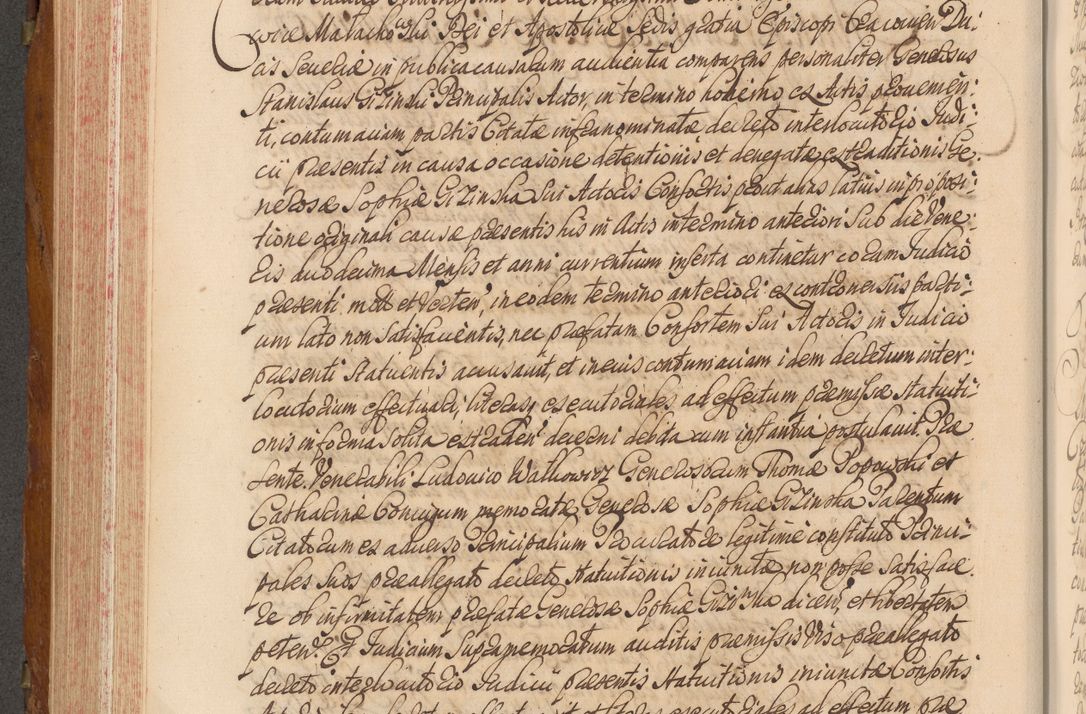 wice Małachowski Dei et Apostolicæ Sedis gratia Episcopi Cracovien Du-
cis Severiæ in publica causarum audientia comparens personaliter Generosus
Stanislaus Giżinski Principalis Actor, in termino hodierno ex Actis provenien:
ti, contumaciam partis Citatæ infranominatæ decreto interlocutorio Judi:
cii præsentis in causa occasione detentionis et denegatæ extraditionis Ge:
nerosæ Sophiæ Giżinska Sui Actoris Consortis prout alias latius in proposi:
tione originali causæ præsentis his in Actis in termino anteriori Sub die Vene:
ris duodecima Mensis et anni currentium inserta continetur coram Judicio
præsenti mott et verten, in eodem termino anteriori ex controversiis parti:
um lato non satisfacientis, nec præfatam Consortem Sui Actoris in Judicio
præsenti Statuentis accusavit, et in eius contumaciam idem decretum inter-
locutorium effectuari, literas executoriales ad effectum præmissæ statuiti-
onis in forma solita extraden decerni debita cum instantia postulavit. Præ
sente Venerabili Ludovico Walkowicz Generosorum Thomæ Popowski et
Catharinæ Coniugum memoratæ Generosæ Sophiæ Giżinska Parentum
Citatorum ex adverso Principalium Procuratore legitime constituto Princi-
pales Suos præallegato decreto statuitionis iniunctæ non posse Satisface.
re ob infirmitatem præfatæ Generosæ Sophiæ Giżinska dicen, et libertatem
peten. Et Judicium Supramemoratum auditis præmissis Viso præallegato
decreto interlocutorio Judicii præsentis Statuitionis iniunctæ Consortis